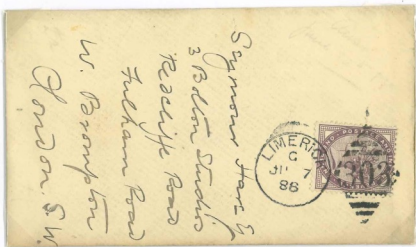 Seymour Hare E
3 Bolton Studios
Redcliffe Road
Fulham Road
W. Brompton
London. S.W
LIMERICK
C
7
86
303